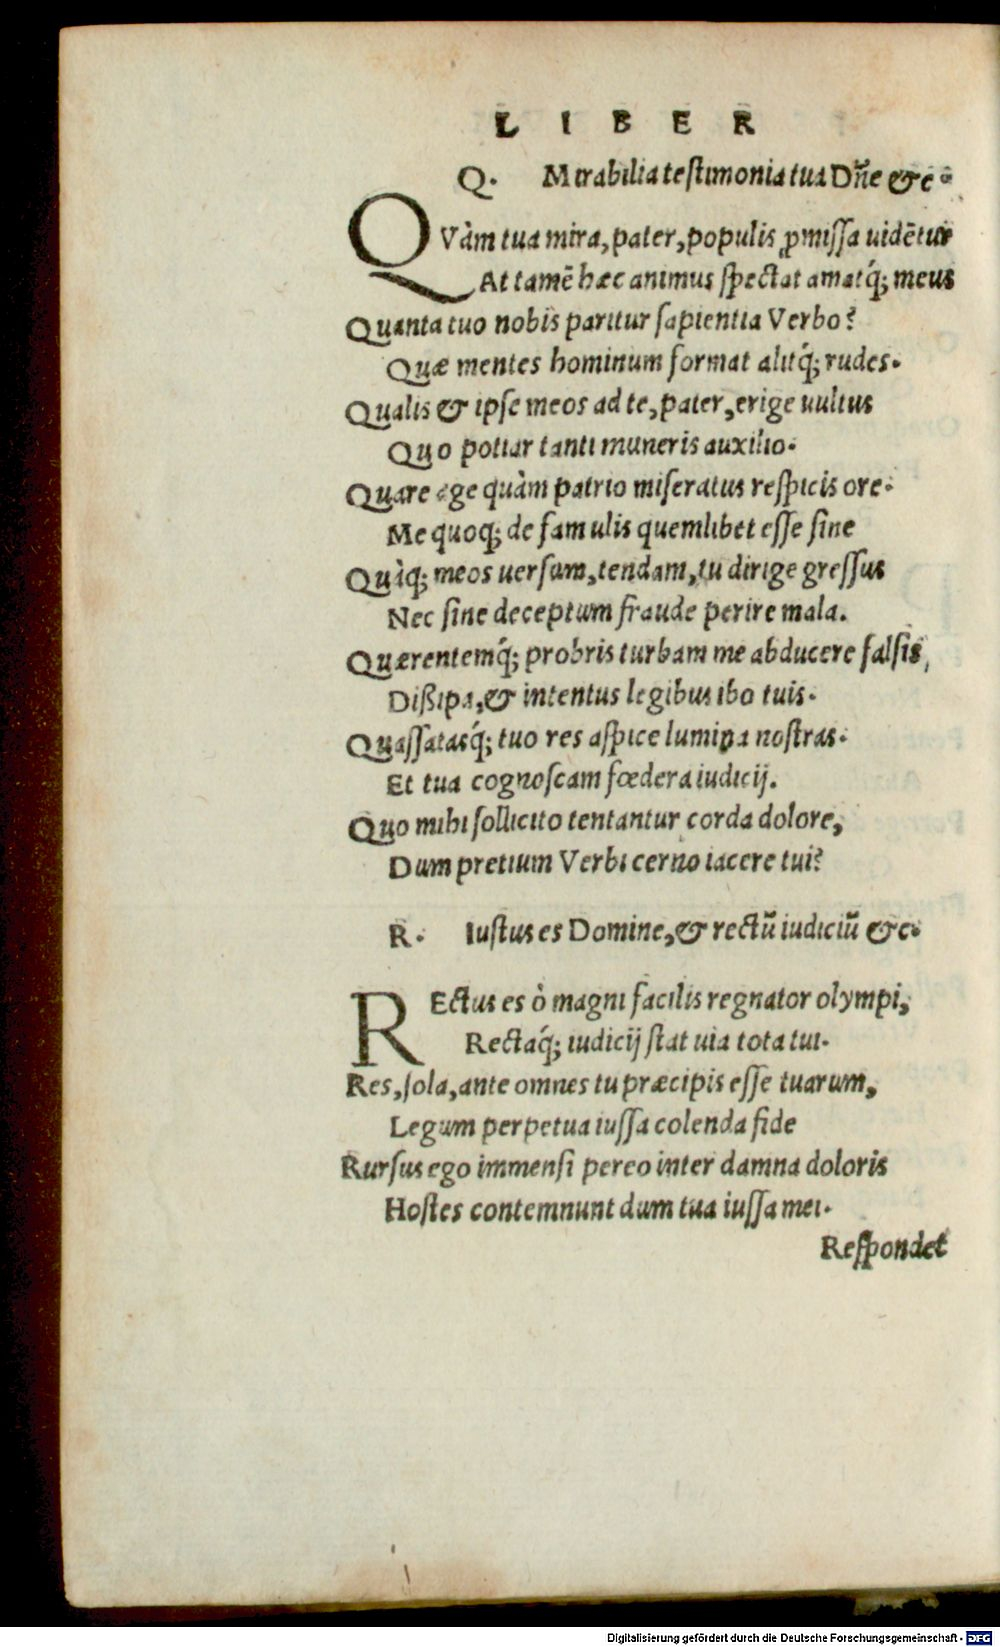 LIBER
Q. Mirabilia testimonia tua Dñe &c.
QVàm tua mira, pater, populis ꝓmissa uidētur
At tamē hæc animus spectat amatq́; meus
Quanta tuo nobis paritur sapientia Verbo?
Quæ mentes hominum format alitq́; rudes.
Qualis & ipse meos ad te, pater, erige uultus
Quo potiar tanti muneris auxilio.
Quare age quàm patrio miseratus respicis ore.
Me quoq; de famulis quemlibet esse sine
Quàq; meos uersum, tendam, tu dirige gressus
Nec sine deceptum fraude perire mala.
Quærentemq́; probris turbam me abducere falsis,
Dißipa, & intentus legibus ibo tuis.
Quassatasq́; tuo res aspice lumina nostras.
Et tua cognoscam fœdera iudicij.
Quo mihi sollicito tentantur corda dolore,
Dum pretium Verbi cerno iacere tui?
R. Iustus es Domine, & rectū iudiciū &c.
REctus es ò magni facilis regnator olympi,
Rectaq́; iudicij stat uia tota tui.
Res, sola, ante omnes tu præcipis esse tuarum,
Legum perpetua iussa colenda fide
Rursus ego immensi pereo inter damna doloris
Hostes contemnunt dum tua iussa mei.
Respondet
Digitalisierung gefördert durch die Deutsche Forschungsgemeinschaft - DFG